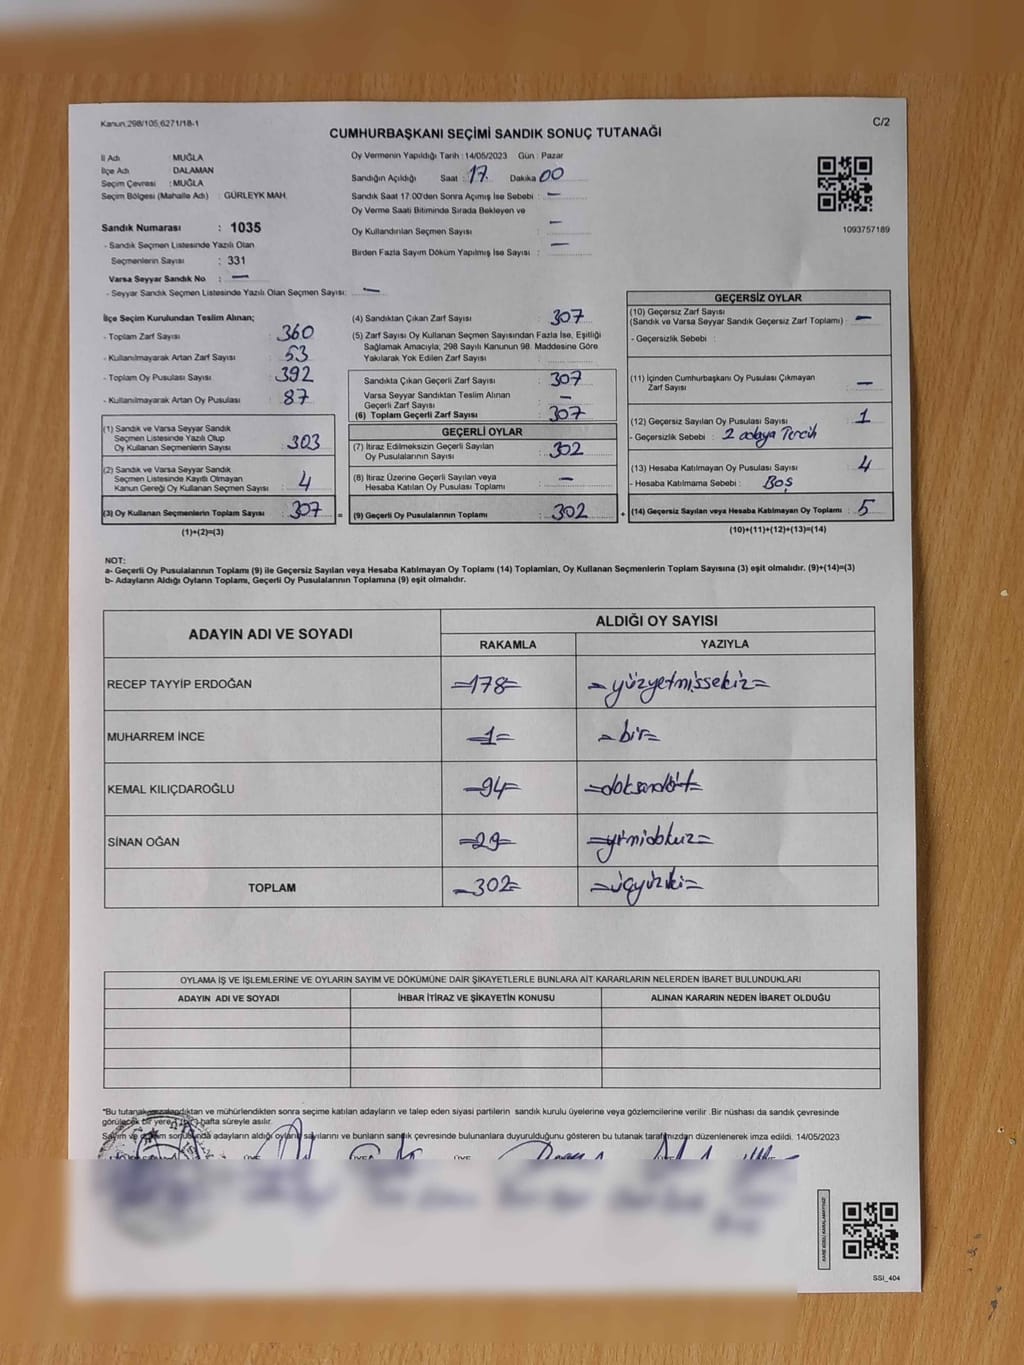 Kanun:298/105,6271/18-1
C/2
CUMHURBAŞKANI SEÇİMİ SANDIK SONUÇ TUTANAĞI
İl Adı MUĞLA
İlçe Adı DALAMAN
Seçim Çevresi : MUĞLA
Seçim Bölgesi (Mahalle Adı) : GÜRLEYK MAH.
Sandık Numarası : 1035
- Sandık Seçmen Listesinde Yazılı Olan
Seçmenlerin Sayısı : 331
Varsa Seyyar Sandık No : —
- Seyyar Sandık Seçmen Listesinde Yazılı Olan Seçmen Sayısı: —
Oy Vermenin Yapıldığı Tarih : 14/05/2023 Gün : Pazar
Sandığın Açıldığı Saat : 17 Dakika 00
Sandık Saat 17:00'den Sonra Açmış İse Sebebi : —
Oy Verme Saati Bitiminde Sırada Bekleyen ve
Oy Kullandırılan Seçmen Sayısı —
Birden Fazla Sayım Döküm Yapılmış İse Sayısı : —
1093757189
İlçe Seçim Kurulundan Teslim Alınan;
- Toplam Zarf Sayısı : 360
- Kullanılmayarak Artan Zarf Sayısı : 53
- Toplam Oy Pusulası Sayısı : 392
- Kullanılmayarak Artan Oy Pusulası : 87
(1) Sandık ve Varsa Seyyar Sandık
Seçmen Listesinde Yazılı Olup
Oy Kullanan Seçmenlerin Sayısı : 303
(2) Sandık ve Varsa Seyyar Sandık
Seçmen Listesinde Kayıtlı Olmayan
Kanun Gereği Oy Kullanan Seçmen Sayısı : 4
(3) Oy Kullanan Seçmenlerin Toplam Sayısı : 307 =
(1)+(2)=(3)
(4) Sandıktan Çıkan Zarf Sayısı : 307
(5) Zarf Sayısı Oy Kullanan Seçmen Sayısından Fazla İse, Eşitliği
Sağlamak Amacıyla, 298 Sayılı Kanunun 98. Maddesine Göre
Yakılarak Yok Edilen Zarf Sayısı :
Sandıkta Çıkan Geçerli Zarf Sayısı : 307
Varsa Seyyar Sandıktan Teslim Alınan
Geçerli Zarf Sayısı : —
(6) Toplam Geçerli Zarf Sayısı : 307
GEÇERLİ OYLAR
(7) İtiraz Edilmeksizin Geçerli Sayılan
Oy Pusulalarının Sayısı : 302
(8) İtiraz Üzerine Geçerli Sayılan veya
Hesaba Katılan Oy Pusulası Toplamı : —
(9) Geçerli Oy Pusulalarının Toplamı : 302 +
GEÇERSİZ OYLAR
(10) Geçersiz Zarf Sayısı
(Sandık ve Varsa Seyyar Sandık Geçersiz Zarf Toplamı) : —
- Geçersizlik Sebebi :
(11) İçinden Cumhurbaşkanı Oy Pusulası Çıkmayan
Zarf Sayısı : —
(12) Geçersiz Sayılan Oy Pusulası Sayısı : 1
- Geçersizlik Sebebi : 2 adaya Tercih
(13) Hesaba Katılmayan Oy Pusulası Sayısı : 4
- Hesaba Katılmama Sebebi : Boş
(14) Geçersiz Sayılan veya Hesaba Katılmayan Oy Toplamı : 5
(10)+(11)+(12)+(13)=(14)
NOT:
a- Geçerli Oy Pusulalarının Toplamı (9) ile Geçersiz Sayılan veya Hesaba Katılmayan Oy Toplamı (14) Toplamları, Oy Kullanan Seçmenlerin Toplam Sayısına (3) eşit olmalıdır. (9)+(14)=(3)
b- Adayların Aldığı Oyların Toplamı, Geçerli Oy Pusulalarının Toplamına (9) eşit olmalıdır.
ADAYIN ADI VE SOYADI ALDIĞI OY SAYISI
RAKAMLA YAZIYLA
RECEP TAYYİP ERDOĞAN =178= = yüzyetmişsekiz=
MUHARREM İNCE =1= =bir=
KEMAL KILIÇDAROĞLU =94= =doksandört=
SİNAN OĞAN =29= =yirmidokuz=
TOPLAM =302= =üçyüziki=
OYLAMA İŞ VE İŞLEMLERİNE VE OYLARIN SAYIM VE DÖKÜMÜNE DAİR ŞİKAYETLERLE BUNLARA AİT KARARLARIN NELERDEN İBARET BULUNDUKLARI
ADAYIN ADI VE SOYADI İHBAR İTİRAZ VE ŞİKAYETİN KONUSU ALINAN KARARIN NEDEN İBARET OLDUĞU
*Bu tutanak imzalandıktan ve mühürlendikten sonra seçime katılan adayların ve talep eden siyasi partilerin sandık kurulu üyelerine veya gözlemcilerine verilir .Bir nüshası da sandık çevresinde
görülecek bir yere hafta süreyle asılır.
Sayım ve döküm sonucunda adayların aldığı oyların sayılarını ve bunların sandık çevresinde bulunanlara duyurulduğunu gösteren bu tutanak tarafımızdan düzenlenerek imza edildi. 14/05/2023
SSI_404